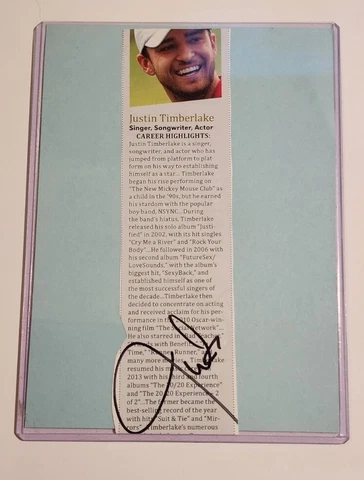 Justin Timberlake
Singer, Songwriter, Actor
CAREER HIGHLIGHTS:
Justin Timberlake is a singer,
songwriter, and actor who has
jumped from platform to plat-
form on his way to establishing
himself as a star... Timberlake
began his rise performing on
"The New Mickey Mouse Club" as
a child in the '90s, but he earned
his stardom with the popular
boy band, NSYNC...During
the band's hiatus, Timberlake
released his solo album "Justi-
fied" in 2002, with its hit singles
"Cry Me a River" and "Rock Your
Body"...He followed in 2006 with
his second album "FutureSex/
LoveSounds," with the album's
biggest hit, "SexyBack," and
established himself as one of
the most successful singers of
the decade...Timberlake then
decided to concentrate on acting
and received acclaim for his per-
formance in the 2010 Oscar-win-
ning film "The Social Network"...
He also starred in "Bad
with Benefit
Time," "Runner Runner,"
many more Timberlake
resumed his
2013 with his third and fourth
albums "The 20/20 Experience"
and "The 20/20 Experience- 2
of 2"...The former became the
best-selling record of the year
with hits "Suit & Tie" and "Mir-
rors"...Timberlake's numerous